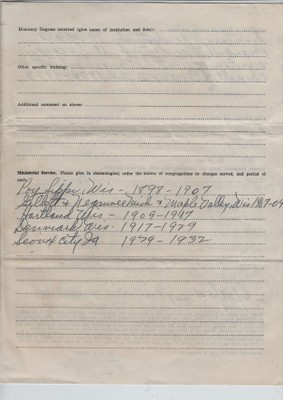 Honorary Degrees received (give name of institution and date):
Other specific training:
Additional comment on above:
Ministerial Service. Please give in chronological order the names of congregations or charges served, and period of
each.
Poy Sippi, Wis - 1898 - 1907
Gillett & Mich & Maple Valley, Wis 1907-09
Hartland Wis - 1909-1917
Denmark, Wis. 1917-1929
Sioux City Ia. 1929 - 1932